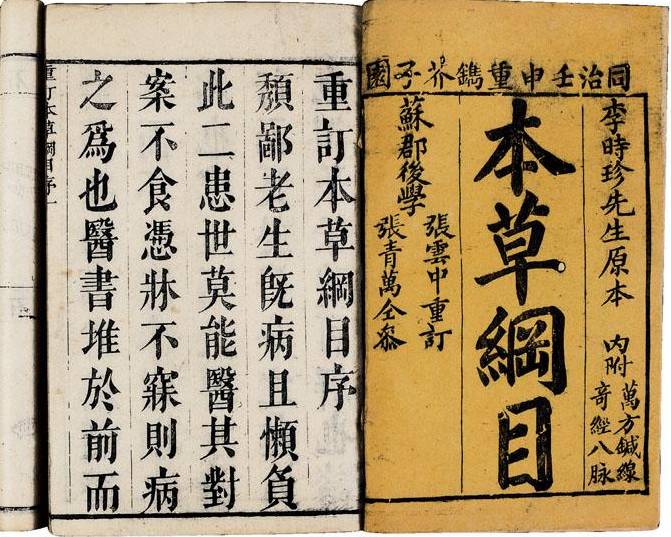 同治壬申重鐫芥子園
李時珍先生原本
內附萬方鍼線
奇經八脉
本草綱目
蘇郡後學
張雲中重訂
張青萬仝參
重訂本草綱目序
頽鄙老生旣病且懶負
此二患世莫能醫其對
案不食憑牀不寐則病
之爲也醫書堆於前而
重訂本草綱目序一